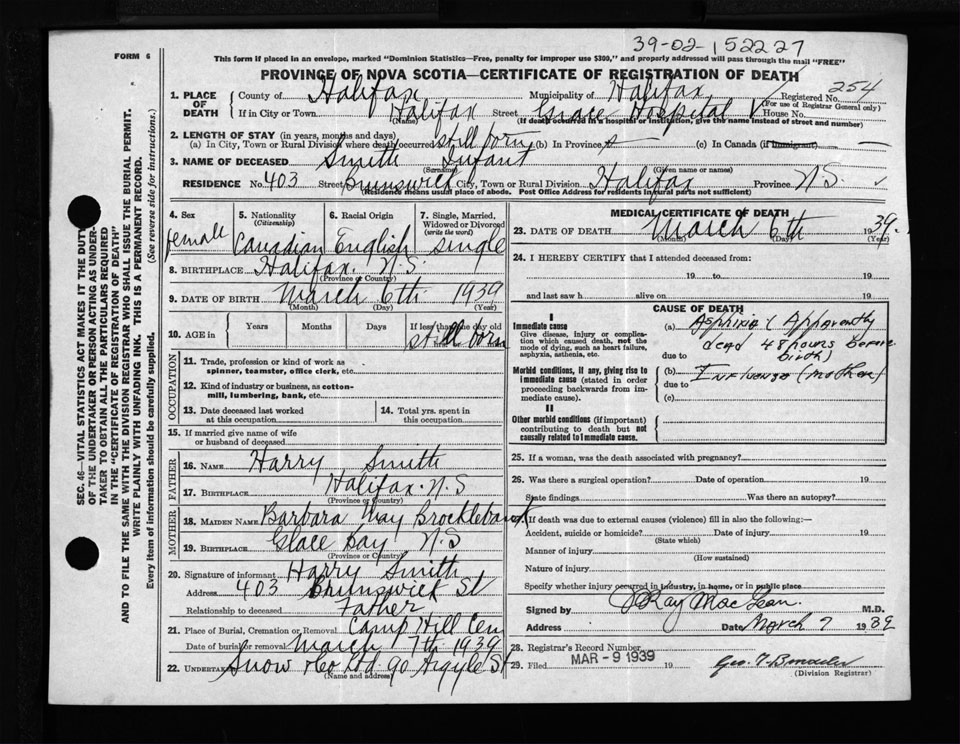 39-02-152227
FORM 6
This form if placed in an envelope, marked "Dominion Statistics—Free, penalty for improper use $300," and properly addressed will pass through the mail "FREE"
PROVINCE OF NOVA SCOTIA—CERTIFICATE OF REGISTRATION OF DEATH
254
1. PLACE OF DEATH County of Halifax Municipality of Halifax Registered No.
(For use of Registrar General only)
If in City or Town Halifax Street Grace Hospital House No.
(Name) (If death occurred in a hospital or institution, give the name instead of street and number)
2. LENGTH OF STAY (in years, months and days)
(a) In City, Town or Rural Division where death occurred still born (b) In Province (c) In Canada (if immigrant) —
3. NAME OF DECEASED Smith Infant
(Surname) (Given name or names)
RESIDENCE No. 403 Street Brunswick City, Town or Rural Division Halifax Province N.S.
(Residence means usual place of abode. Post Office Address for Residents in rural parts not sufficient)
4. Sex female
5. Nationality (Citizenship) Canadian
6. Racial Origin English
7. Single, Married, Widowed or Divorced (write the word) single
8. BIRTHPLACE Halifax N.S.
(Province or Country)
9. DATE OF BIRTH March 6th 1939
(Month) (Day) (Year)
10. AGE in Years Months Days If less than one day old
still born
OCCUPATION
11. Trade, profession or kind of work as spinner, teamster, office clerk, etc.
12. Kind of industry or business, as cotton-mill, lumbering, bank, etc.
13. Date deceased last worked at this occupation
14. Total yrs. spent in this occupation
15. If married give name of wife or husband of deceased
FATHER
16. NAME Harry Smith
17. BIRTHPLACE Halifax N.S
(Province or Country)
MOTHER
18. MAIDEN NAME Barbara May Brocklebank
19. BIRTHPLACE Glace Bay N.S
(Province or Country)
20. Signature of informant Harry Smith
Address 403 Brunswick St
Relationship to deceased Father
21. Place of Burial, Cremation or Removal Camp Hill Cem
Date of burial or removal March 7th 1939
22. UNDERTAKER Snow & Co Ltd 90 Argyle St
(Name and address)
MEDICAL CERTIFICATE OF DEATH
23. DATE OF DEATH March 6th 1939.
(Month) (Day) (Year)
24. I HEREBY CERTIFY that I attended deceased from:
19 to 19
and last saw h alive on 19
CAUSE OF DEATH
I
Immediate cause
Give disease, injury or complication which caused death, not the mode of dying, such as heart failure, asphyxia, asthenia, etc.
(a) Asphixia (Apparently
dead 48 hours before
due to birth)
Morbid conditions, if any, giving rise to immediate cause (stated in order proceeding backwards from immediate cause).
(b) Influenza (mother)
due to
(c)
II
Other morbid conditions (if important) contributing to death but not causally related to immediate cause.
25. If a woman, was the death associated with pregnancy?
26. Was there a surgical operation? Date of operation 19
State findings Was there an autopsy?
If death was due to external causes (violence) fill in also the following:—
Accident, suicide or homicide? Date of injury 19
(State which)
Manner of injury
(How sustained)
Nature of injury
Specify whether injury occurred in industry, in home, or in public place
Signed by J Ray MacLean. M.D.
Address Date March 7 1939
28. Registrar's Record Number
29. Filed MAR - 9 1939 19
(Division Registrar)
SEC. 46—VITAL STATISTICS ACT MAKES IT THE DUTY
OF THE UNDERTAKER OR PERSON ACTING AS UNDER-
TAKER TO OBTAIN ALL THE PARTICULARS REQUIRED
IN THE "CERTIFICATE OF REGISTRATION OF DEATH"
AND TO FILE THE SAME WITH THE DIVISION REGISTRAR WHO SHALL ISSUE THE BURIAL PERMIT.
WRITE PLAINLY WITH UNFADING INK. THIS IS A PERMANENT RECORD.
Every item of information should be carefully supplied. (See reverse side for instructions.)